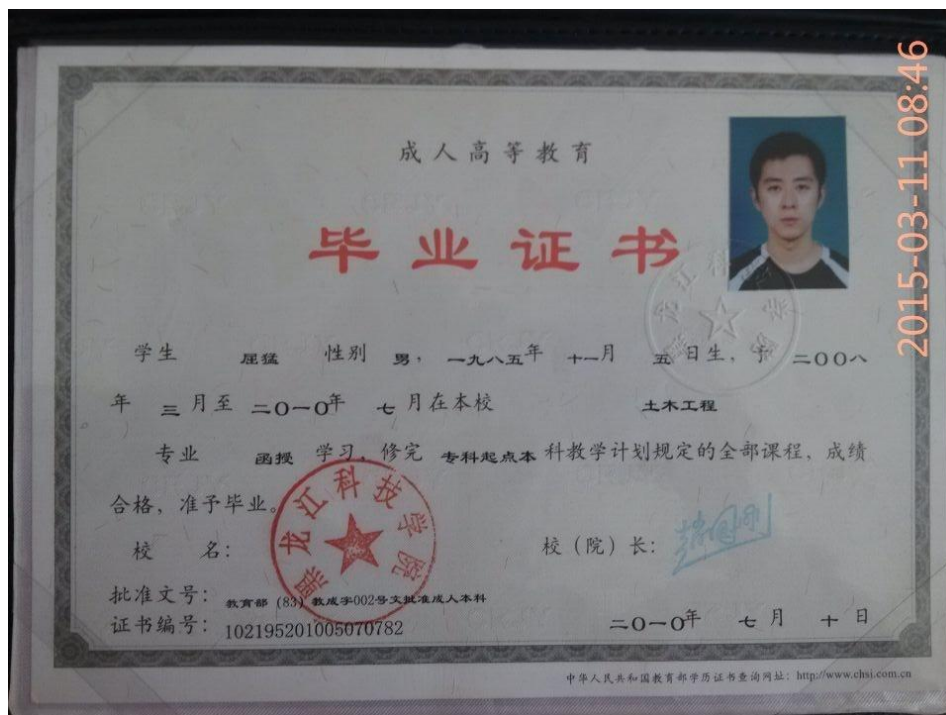 成人高等教育
毕业证书
学生 屈猛 性别 男, 一九八五年 十一月 五日生, 于 二〇〇八
年 三月至 二〇一〇年 七月在本校 土木工程
专业 函授 学习, 修完 专科起点本科教学计划规定的全部课程, 成绩
合格, 准予毕业。
黑龙江科技学院
黑龙江科技学院
校 名: 校（院）长:
批准文号: 教育部（83）教成字002号文批准成人本科
证书编号: 102195201005070782 二〇一〇年 七月 十日
中华人民共和国教育部学历证书查询网址: http://www.chsi.com.cn
2015-03-11 08:46